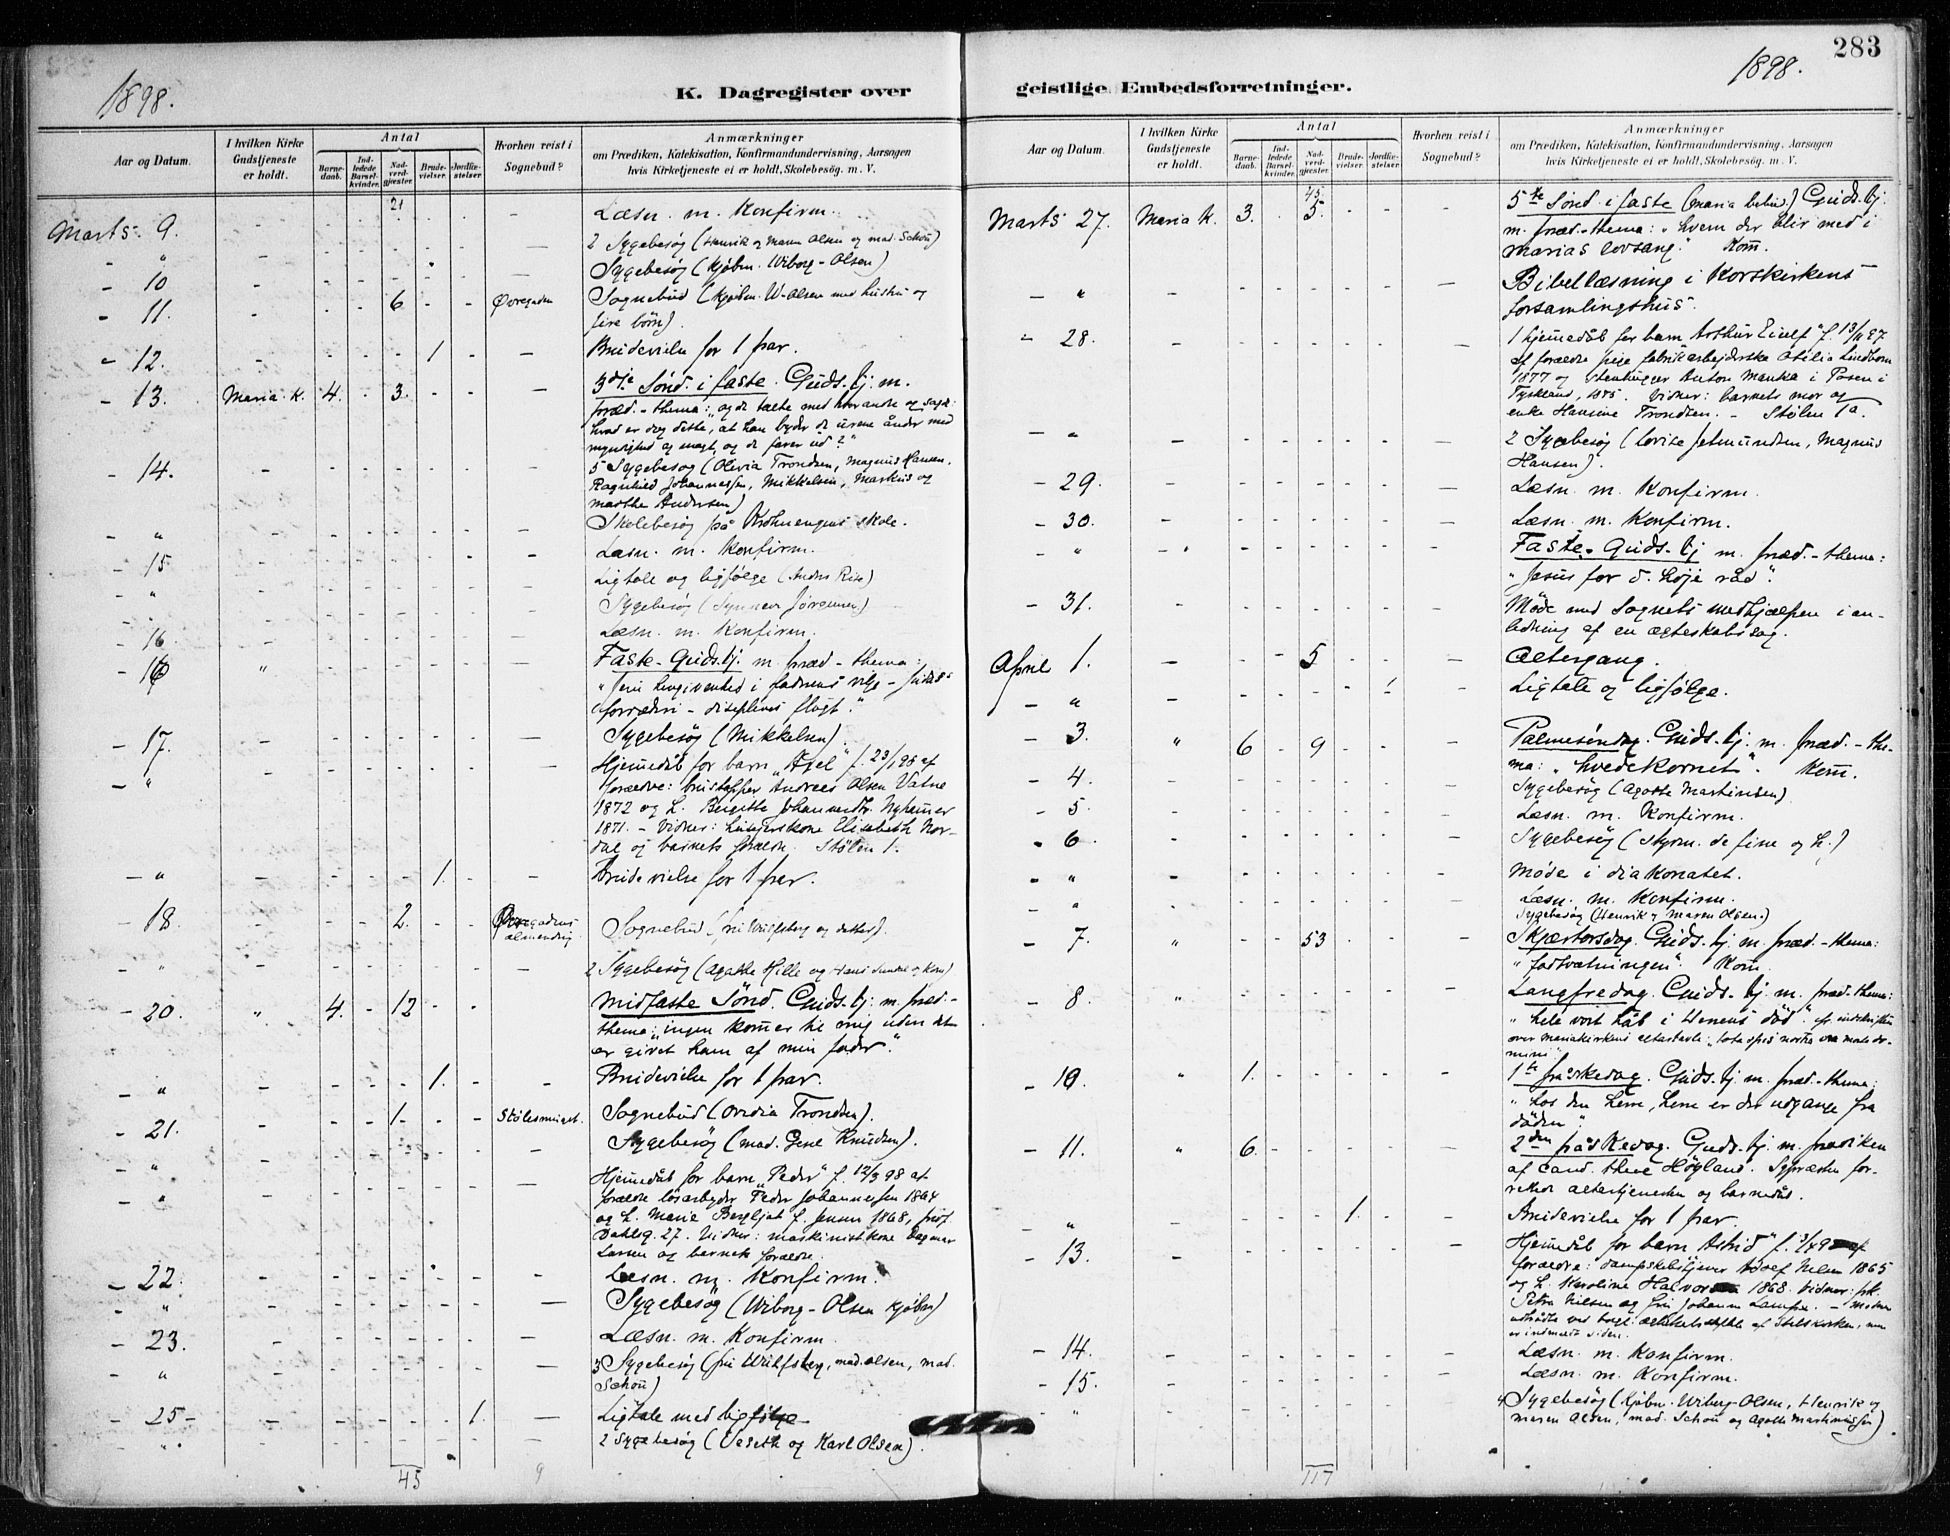 283
1898.
1898.
K. Dagregister over
geistlige Embedsforretninger.
Aar og Datum.
I hvilken Kirke Gudstjeneste er holdt.
Antal
Barnedaab.
Indledede Barselkvinder.
Nadverdgjester.
Brudevielser.
Jordfæstelser.
Hvorhen reist i Sognebud?
Anmærkninger
om Prædiken, Katekisation, Konfirmandundervisning, Aarsagen
hvis Kirketjeneste ei er holdt, Skolebesög. m. V.
21
Marts 9. - - - - - Læsn. m. Konfirm.
" 2 Sygebesøg (Henrik og Maren Olsen og mad. Schou)
- 10 Sygebesøg (kjøbm. Wiborg-Olsen)
- 11. 6 Øvregaden Sognebud (kjøbm. W-Olsen med hustru og
fire börn).
- 12. 1 Brudevielse for 1 par.
- 13. Maria K. 4. 3. 3dje Sönd. i faste. Guds.tj. m.
præd.-thema: "og de talte med hverandre og sagde:
hvad er dog dette, at han byder de urene ånder med
myndighed og magt, og de farer ud?"
- 14. 5 Sygebesøg (Olivia Trondsen, Magnus Hansen,
Ragnhild Johannessen, Mikkelsen, Markus og
Marthe Andersen)
" Skolebesøg på Krohnengens skole.
- 15 Læsn. m. Konfirm.
" Ligtale og ligfølge (Anders Rise)
" Sygebesøg (Synneva Jørgensen)
- 16 Læsn. m. Konfirm.
- 16 " Faste-Guds.tj. m. præd.-thema:
"Jesu hengivenhed i faderens vilje - Judas
forræderi - disiplenes flugt."
- 17. Sygebesøg (Mikkelsen)
- " Hjemmedåb for barn "Axel" f. 23/1 95 af
forældre: Andreas Olsen Vatne
1872 og h. Birgitte Johannesdtr. Nyhamer
1871. - Vidner: Elisabeth Nordal
og barnets forældre. Stølen 1.
- " 1. Brudevielse for 1 par.
- 18. 2. Øvregadens almending Sognebud (fru Wulfsberg og datter).
" 2 Sygebesøg (Agathe Hille og Hans)
- 20. " 4. 12 Midfaste Sönd. Guds.tj. m. præd.-
thema: "ingen kommer til mig uden det
er givet ham af min fader."
" 1. Brudevielse for 1 par.
- 21. 1. Stølesmuget. Sognebud (Ovidia Trondsen).
" Sygebesøg (mad. Gene Knudsen).
" Hjemmedåb for barn "Peder" f. 12/3 98 af
forældre løsarbeider Peder Johannessen 1864
og h. Marie Bergljot f. Jensen 1868,
Dahlsg. 27. Vidner: maskinistkone Dagmar
Larsen og barnets forældre.
- 22. Læsn. m. Konfirm.
" Sygebesøg (Wiborg-Olsen kjøbm)
- 23. Læsn. m. Konfirm.
" 3 Sygebesøg (fru Wulfsberg, mad. Olsen, mad.
Schou)
- 25- 1. Ligtale med ligfølge
" 2 Sygebesøg (Veseth og Karl Olsen).
45
9
Aar og Datum.
I hvilken Kirke Gudstjeneste er holdt.
Antal
Barnedaab.
Indledede Barselkvinder.
Nadverdgjester.
Brudevielser.
Jordfæstelser.
Hvorhen reist i Sognebud?
Anmærkninger
om Prædiken, Katekisation, Konfirmandundervisning, Aarsagen
hvis Kirketjeneste ei er holdt, Skolebesög. m. V.
45.
Marts 27. Maria K. 3. 5. 5te Sönd. i faste (Maria bebud.) Guds.tj.
m. præd.-thema: "hvem der blir med i
Marias lovsang." Kom.
- " Bibellæsning i Korskirkens
forsamlingshus.
- 28. 1 hjemmedåb for barn Arthur Eivelf f. 13/11 97
af forældre pige fabrikarbejderske Otilia Lindhom
1877 og Stenhugger Anton Manka i Posen i
Tyskland, 1875. Vidner: barnets mor og
enke Hansine Trondsen. - Stølen 1a.
- " 2 Sygebesøg (Lovise Jetmundsen, Magnus
Hansen).
- 29. Læsn. m. Konfirm.
- 30. Læsn. m. Konfirm.
- " Faste-Guds.tj m. præd.-thema:
"Jesus for d. høje råd".
- 31. Møde med Sognets medhjælpen i anledning
af en ægteskabssag.
April 1. 5 Altergang.
- " 1 Ligtale og ligfølge.
- 3. " 6 9 Palmesöndag. Guds.tj. m. præd.-thema:
"hvedekornet". Kom.
- 4. Sygebesøg (Agathe Martinsen)
- 5. Læsn. m. Konfirm.
- 6. Sygebesøg (Styrm. de fine og h.)
- " Møde i diakonatet.
- " Læsn. m. Konfirm.
Sygebesøg (Henrik og Maren Olsen.)
- 7. " 53 Skjærtorsdag. Guds.tj. m. præd.-thema:
"fodtvætningen". Kom.
- 8. " Langfredag. Guds.tj. m. præd.-thema:
"hele vort håb i Herrens död". efr. indskriften
over mariakirkens altertavle: "tota spes nostra morte domini".
- 10 " 1. 1te påskedag. Guds.tj. m. præd.-thema:
"hos den Herre, Herre er der udgange fra
döden"
- 11. " 6. 2den påskedag. Guds.tj. m. prædiken
af cand. theol Högland. Sgpræsten forrettede
altertjenesten og barnedåb.
- " 1. Brudevielse for 1 par.
- 13. Hjemmedåb for barn "Astrid" f.
forældre: dampskibsfyrbøter Adolf Nilsen 1865
og h. Karoline Halvors 1868. Vidner: frk.
Petra Nilsen og fru Johanna Lampe. - Moderen
- 14. Læsn. m. Konfirm.
- 15. Læsn. m. Konfirm.
" 4 Sygebesøg (Kjøbm. Wiborg-Olsen, Henrik og
Maren Olsen, mad. Schou og Agathe Martinussen)
117